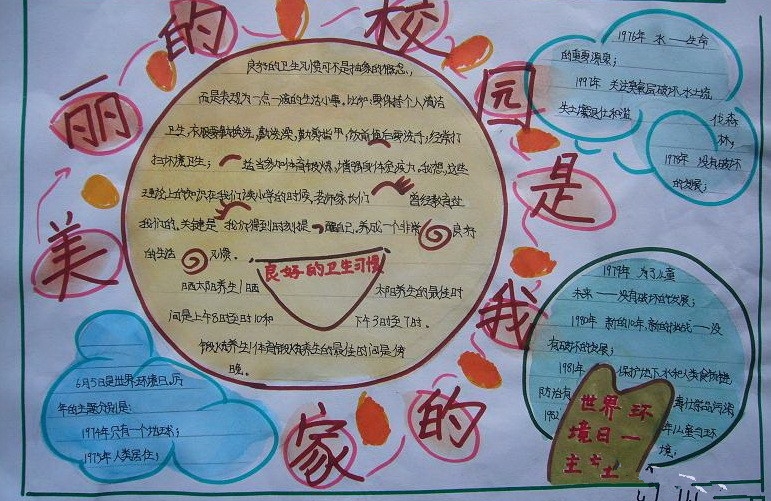 美丽的校园是我的家
良好的卫生习惯可不是抽象的概念,
而是表现为一点一滴的生活小事。比如:要保持个人清洁
卫生,不服要勤换洗,勤洗澡,勤剪指甲,饭前便后要洗手,经常打
扫环境卫生;适当参加体育锻炼,增强身体免疫力。我想,这些
理论上的知识在我们读小学的时候,老师家长们曾经教育过
我们的。关键是我们得时刻提醒自己,养成一个非常良好
的生活习惯。
良好的卫生习惯
晒太阳养生!晒太阳养生的最佳时
间是上午8时至时10和下午3时至7时。
锻炼养生!体育锻炼养生的最佳的时间是傍
晚。
1976年 水——生命
的重要源泉;
1977年 关注臭氧层破坏、水土流
失土壤退化和滥伐森林;
1978年 没有破坏
的发展;
1979年 为了儿童
未来——没有破坏的发展;
1980年 新的10年,新的挑战——没
有破坏的发展;
1981年 保护地下水和人类食物链
防治有毒化学品污染
1982
世界环
境日一
主土
6月5日是世界环境日,历
年的主题分别是:
1974年只有一个地球;
1975年人类居住;